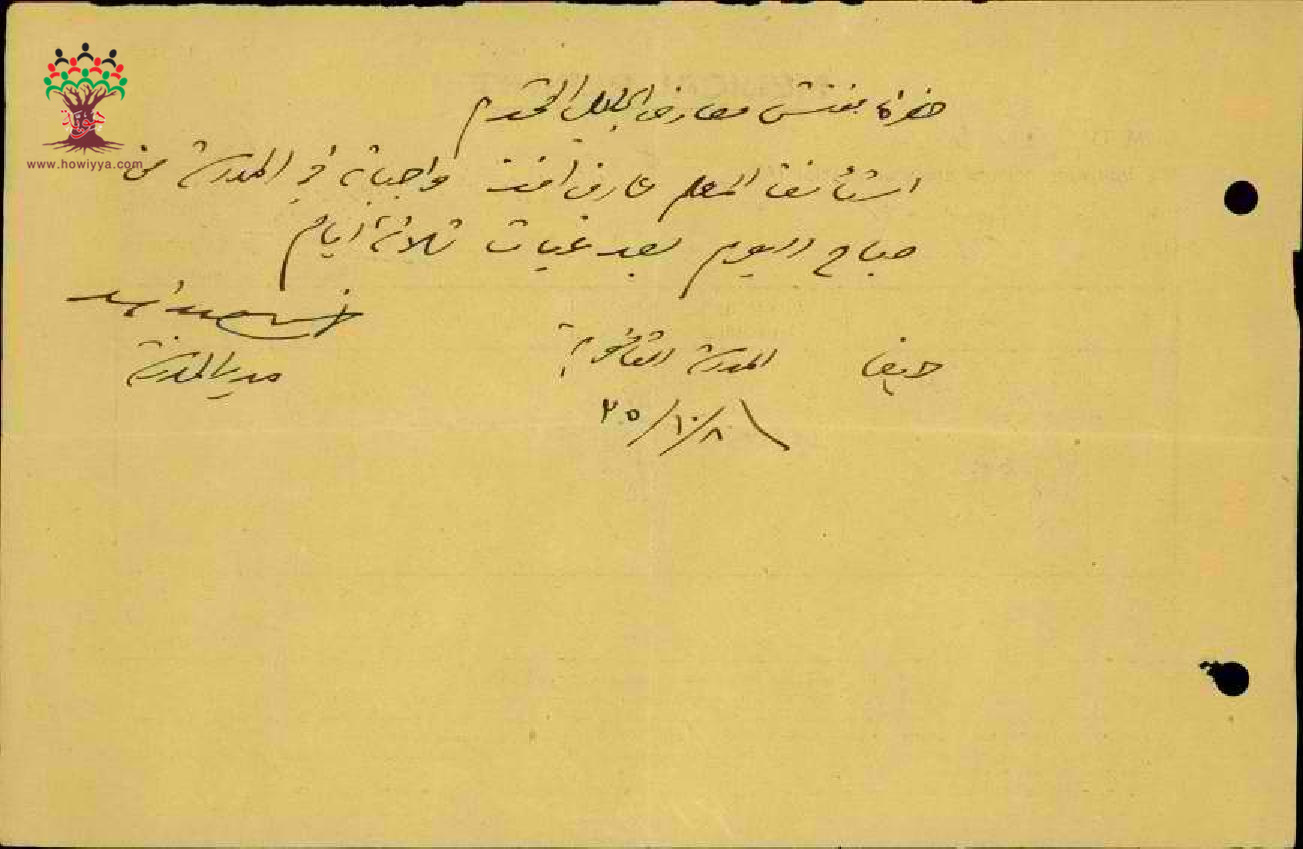 حضرة مفتش معارف الجليل المحترم
www.howiyya.com
استأنف المعلم عارف افندي واجباته في المدرسة من
صباح اليوم بعد غياب ثلاثة ايام
حيفا المدرسة الثانوية
مدير المدرسة
٢٥/١٠/٨